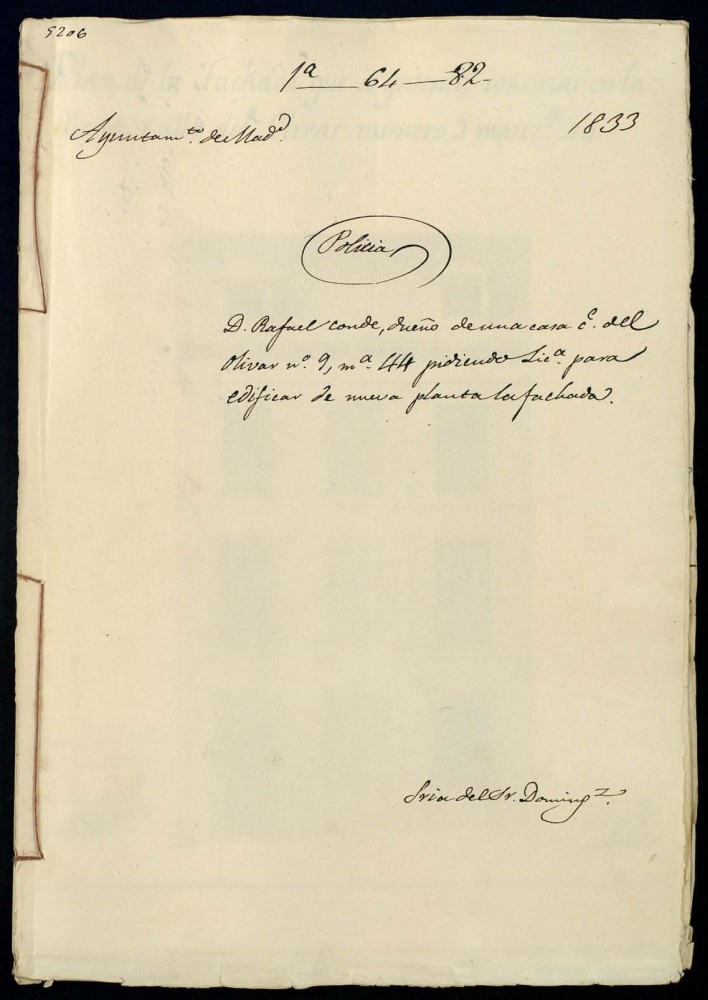 5206
1ª 64 82
Ayuntam.to de Mad.d
1833
Policia
D. Rafael Conde, dueño de una casa c.e del
Olivar nº. 9, m.ª 44 pidiendo Lic.ª para
edificar de nueva planta la fachada.
Sria del Sr. Doming.z